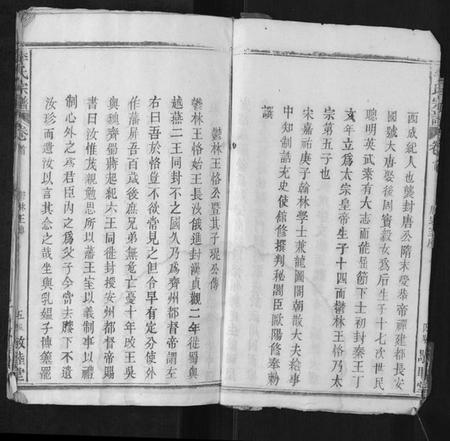 西成紀人也襲封唐公隋末受恭帝禪建都長安
國號大唐娶後周竇毅女爲后生子十七次世民
聰明英武素有大志而能屈節下士初封秦王丁
亥年立爲太宗皇帝生子十四而鬱林王恪乃太
宗第五子也
宋嘉祐庚子翰林學士兼龍圖閣朝散大夫給事
中知制誥充史館修撰判秘閣臣歐陽修奉勅
譔
鬱林王恪公暨其子琨公傳
鬱林王恪始王長沙俄進封漢貞觀二年徙蜀與
越燕二王同封不之國久乃爲齊州都督帝謂左
右曰吾於恪豈不欲常見之但令早有定分使外
作藩屏吾百歲後庶兄弟無危亡憂十年改王吳
與魏齊蜀蔣越紀六王同徙封授安州都督帝賜
書曰汝惟茂親勉思所以藩王室以義制事以禮
制心外之爲君臣內之爲父子今當去膝下不遺
汝珍而遺汝以言其念之哉坐與乳媼子博簺罷
李氏宗譜
卷首
鬱林王傳
五
敦睦堂